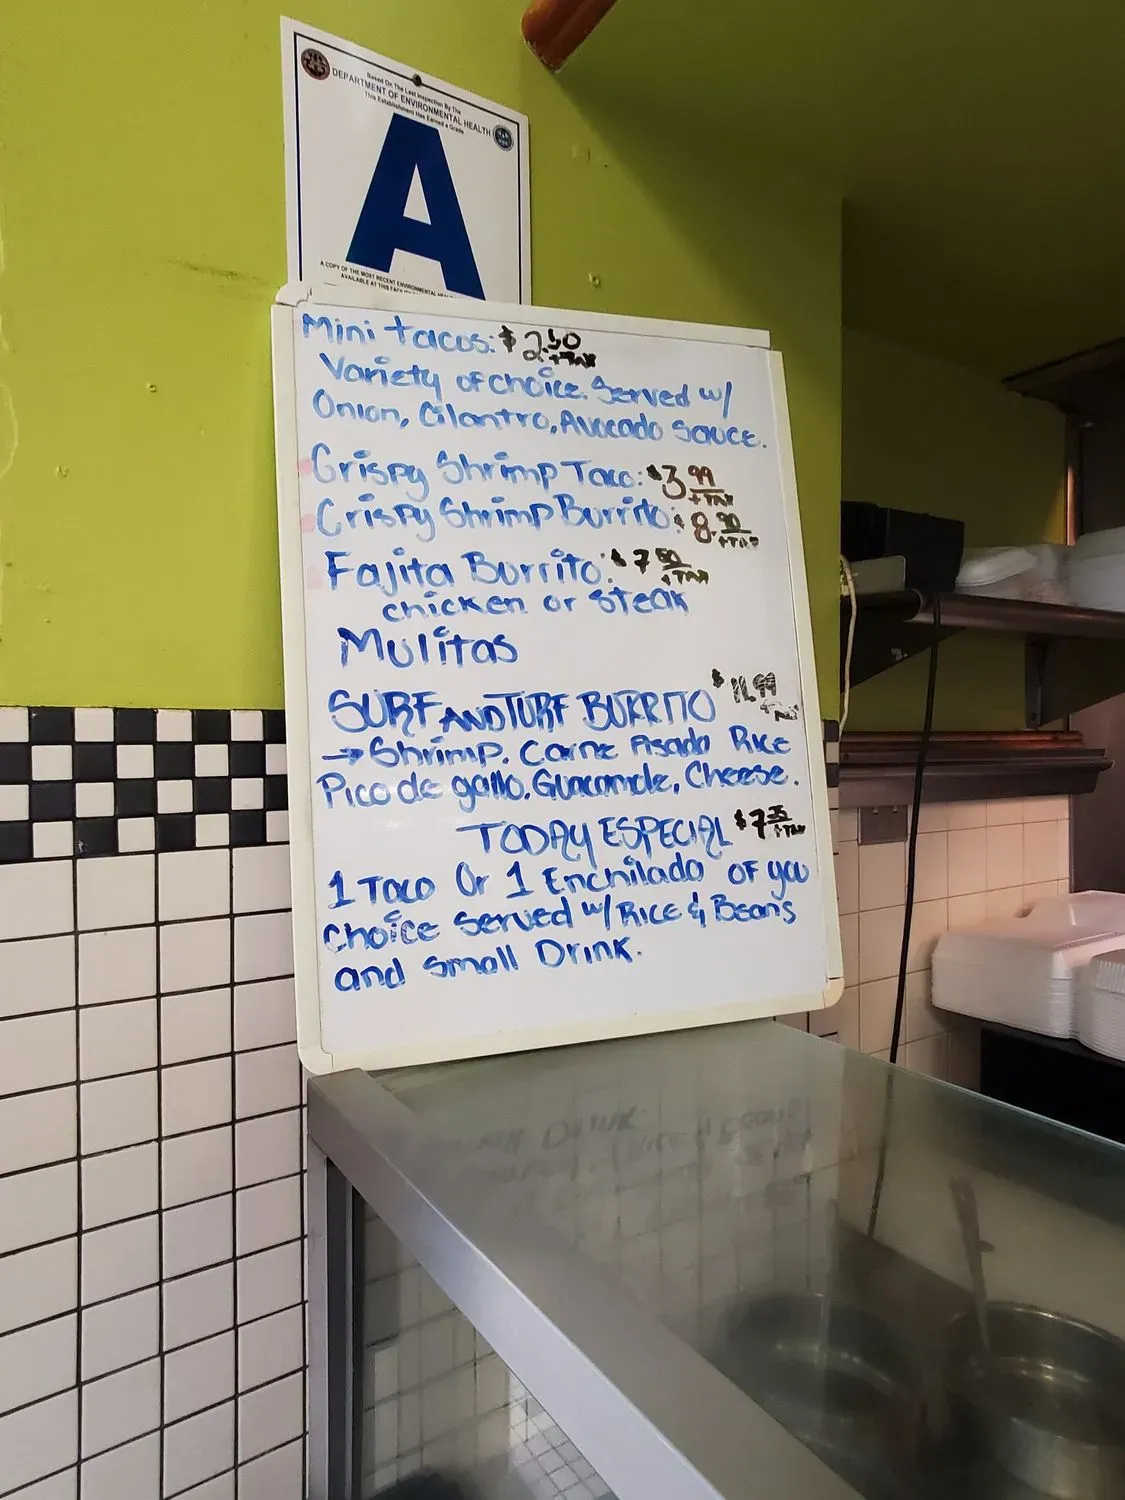 Based On The Last Inspection By The
DEPARTMENT OF ENVIRONMENTAL HEALTH
This Establishment Has Earned a Grade
A
A COPY OF THE MOST RECENT ENVIRONMENTAL HEAL
AVAILABLE AT THIS FACI
Mini tacos: $2.50 +TAX
Variety of choice. Served w/
Onion, Cilantro, Avocado sauce.
Crispy Shrimp Taco: $3.99 +TAX
Crispy Shrimp Burrito: $8.90 +TAX
Fajita Burrito: $7.50 +TAX
chicken or steak
Mulitas
SURF AND TURF BURRITO $11.99 +TAX
→ Shrimp. Carne Asada Rice
Pico de gallo. Guacamole, Cheese.
TODAY ESPECIAL $7.35 +TAX
1 Taco Or 1 Enchilada OF you
choice served w/ RICE & Beans
and small Drink.